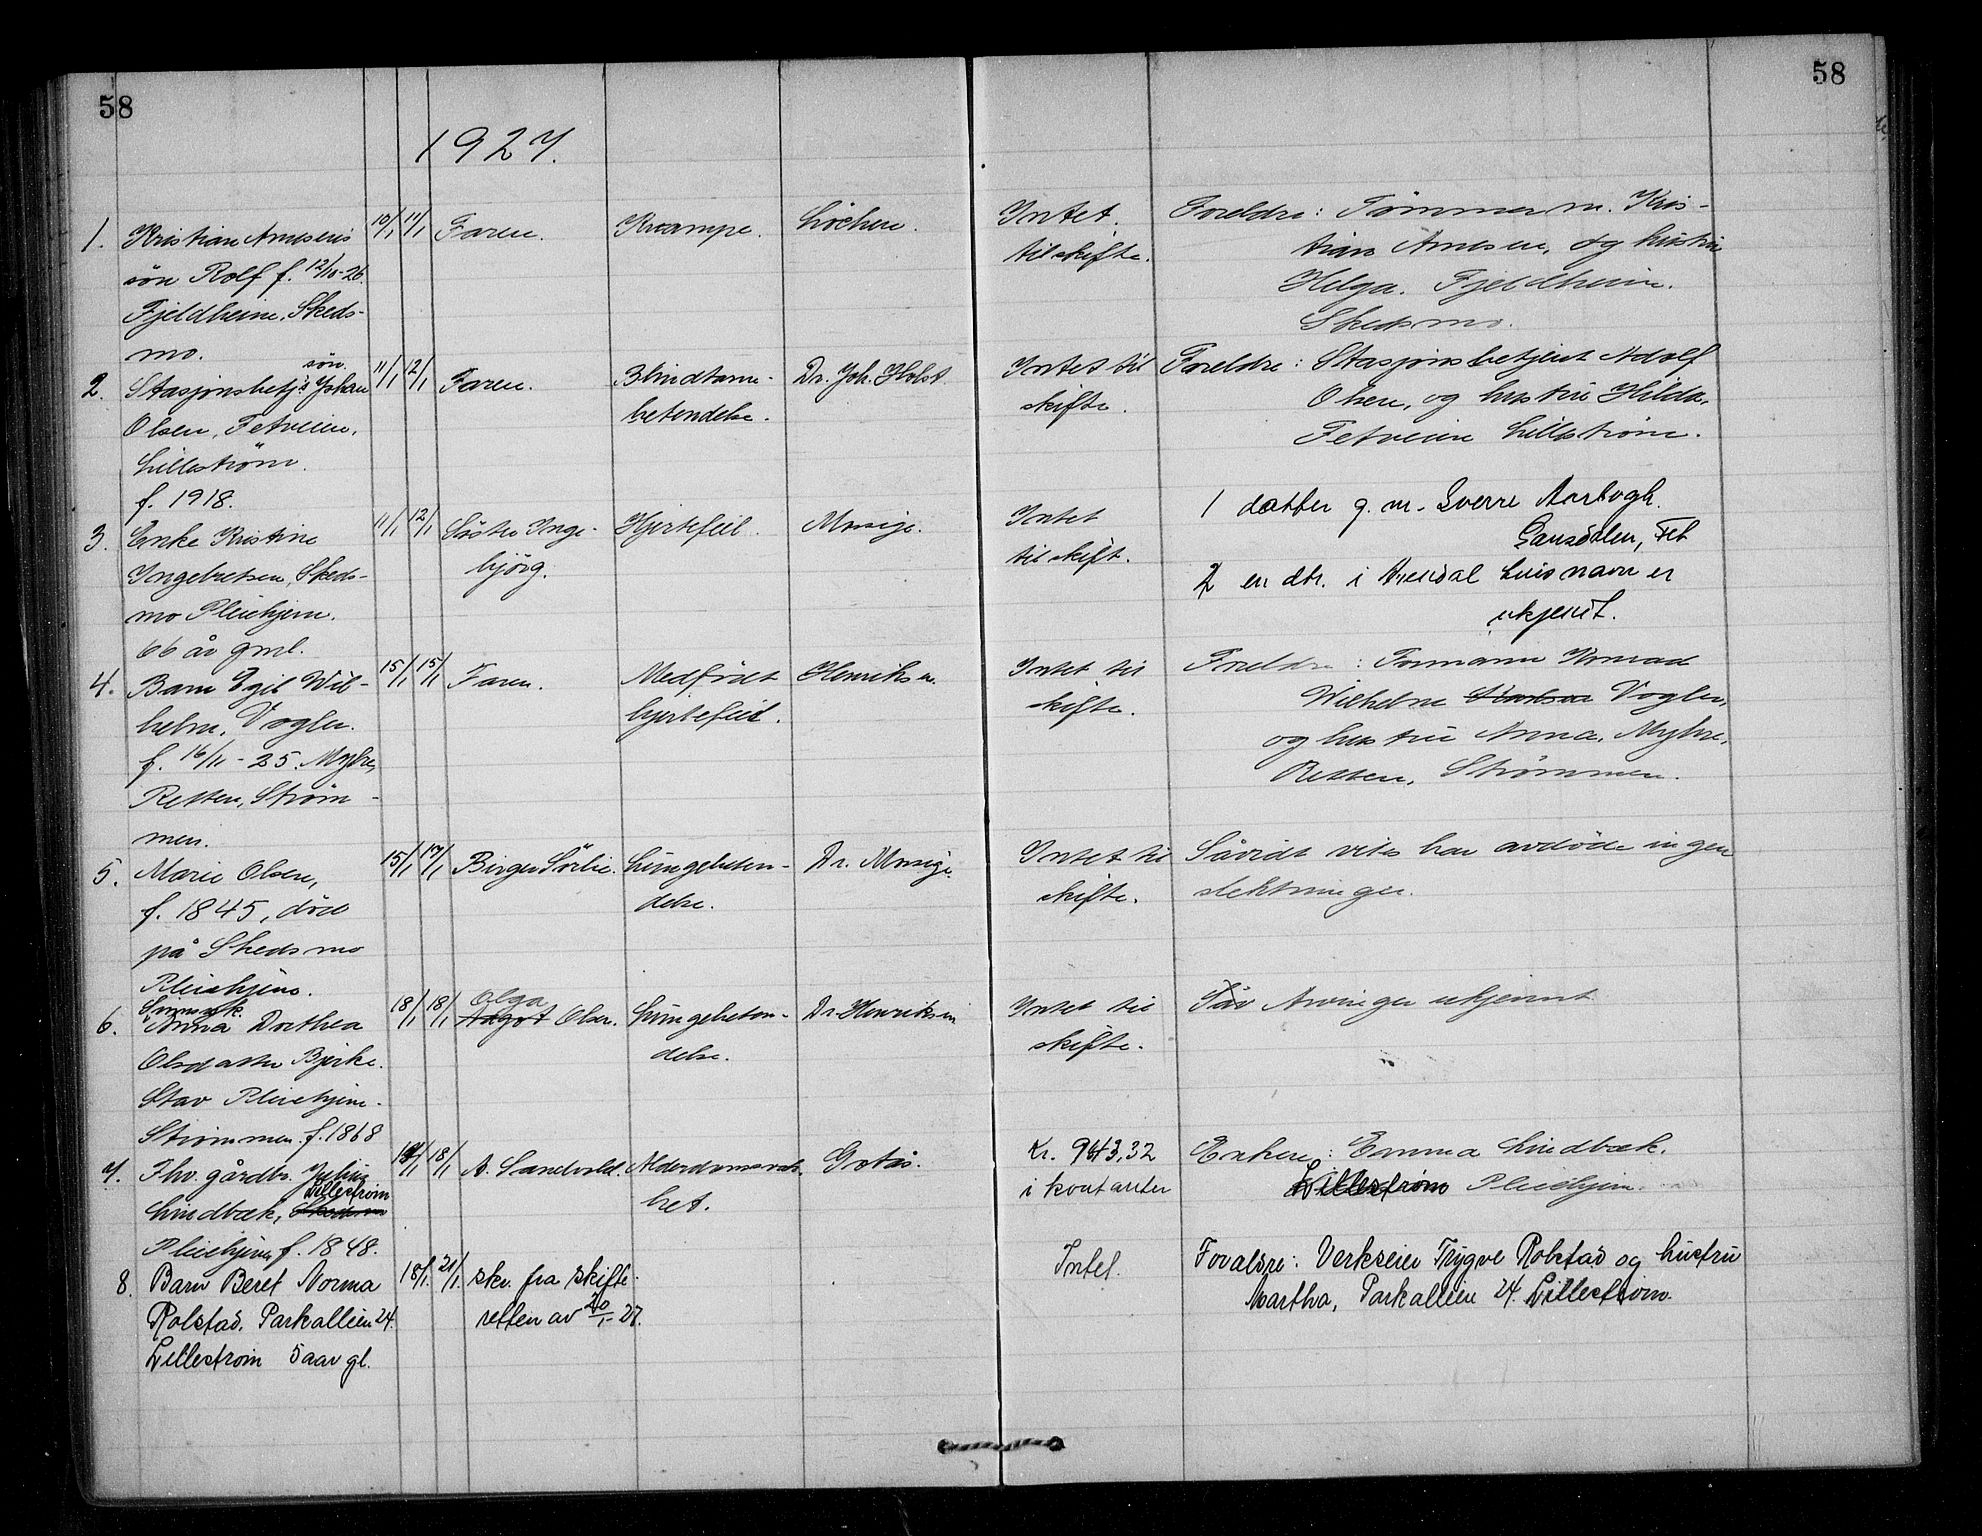 58
58
1927.
1. Kristian Arnesens
søn Rolf f. 12/10-26.
Fjeldheim, Skeds-
mo.
10/1 11/1 Faren. Krampe. Løchen.
Intet
til skifte.
Foreldre: Tømmerm. Kris-
tian Arnesen, og hustru
Helga. Fjeldheim.
Skedsmo.
2. Stasjonsbetj.s søn Johan
Olsen, Fetveien,
Lillestrøm.
f. 1918.
11/1 12/1 Faren. Blindtarm-
betendelse.
Dr. Joh. Holst.
Intet til
skifte.
Foreldre: Stasjonsbetjent Adolf
Olsen, og hustru Hilda,
Fetveien Lillestrøm.
3. Enke Kristine
Ingebretsen, Skeds-
mo Pleiehjem.
66 år gml.
11/1 12/1 Søster Inge-
bjørg.
Hjertefeil. Mossige.
Intet
til skift.
1 datter g. m. Sverre Aarbogh.
Gansdalen, Fet
2 en dtr. i Arendal hvis navn er
ukjent.
4. Barn Egil Wil-
helm, Vogler.
f. 16/11-25. Myhre,
Retten, Strøm-
men.
15/1 15/1 Faren. Medfødt
hjertefeil.
Henriksen.
Intet til
skifte.
Foreldre: Formann Konrad
Wilhelm Vogler,
og hustru Anna, Myhre,
Retten, Strømmen.
5. Marie Olsen,
f. 1845, død
på Skedsmo
Pleiehjem.
15/1 17/1 Birger Sørlie. Lungebeten-
delse.
Dr. Mossige.
Intet til
skifte.
Såvidt vites har avdøde ingen
slektninger.
6. Sinnssyk.
Anna Dorthea
Olsdatter Bjerke.
Stav Pleiehjem.
Strømmen. f. 1868
18/1 18/1 Olga
Aagot Olsen. Lungebeten-
delse.
Dr. Henriksen
Intet til
skifte.
Arvinger ukjennt
7. Fhv. gårdbr. Julius
Lindbæk, Lillestrøm Skedsmo
Pleiehjem, f. 1848.
18/1 A. Sandvold. Alderdomsvak-
het.
Gotås.
Kr. 943,32
i kontanter
Enken: Emma Lindbæk.
Lillestrøm Pleiehjem.
8. Barn Beret Norma
Rolstad, Parkalleen 24.
Lillestrøm 5 aar gl.
18/1 21/1 skr. fra skifte-
retten av 20/1-27.
Intet.
Forældre: Verkseier Trygve Rolstad og hustru
Martha, Parkalleen 24. Lillestrøm.